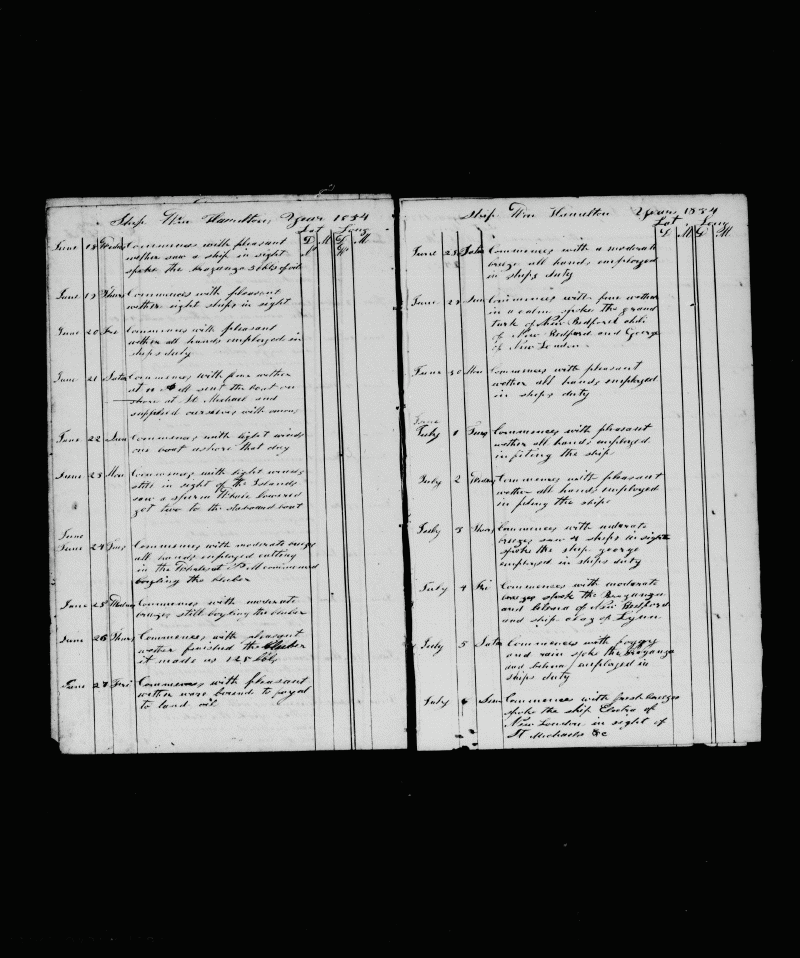 Ship Wm Hamilton, Year 1834
Lat Long
D M D M
June 18 Wedns Commences with pleasant
wether saw a ship in sight
spoke the Braganza
June 19 Thurs Commences with pleasant
wether eight ships in sight
June 20 Fri Commences with pleasant
wether all hands employed in
ships duty
June 21 Satu Commences with fine wether
sent the boat on
shore at St Michael and
supplied ourselves with
June 22 Sun Commences with light winds
one boat ashore that day
June 23 Mon Commences with light winds
still in sight of the Islands
saw a sperm Whale lowered
got two to the starboard boat
June
June 24 Tues Commences with moderate breezes
all hands employed cutting
in the Whales at P M commenced
boyling the bluber
June 25 Wedns Commences with moderate
breezes still boyling the bluber
June 26 Thurs Commences with pleasant
wether finished the bluber
it made us 125 bbls
June 27 Fri Commences with pleasant
wether wore bound to foyal
to land oil
Ship Wm Hamilton Year 1834
Lat Long
D M D M
June 28 Satu Commences with a moderate
breeze all hands employed
in ships duty
June 29 Sun Commences with fine wether
in a calm spoke the grand
turk of New Bedford
of New Bedford and George
of New London
June 30 Mon Commences with pleasant
wether all hands employed
in ships duty
June
July 1 Tues Commences with pleasant
wether all hands employed
in fiting the ship
July 2 Wedns Commences with pleasant
wether all hands employed
in fiting the ship
July 3 Thurs Commences with moderate
breezes saw 4 ships in sight
spoke the ship george
employed in ships duty
July 4 Fri Commences with moderate
breezes spoke the Braganza
and of New Bedford
and ship of Lynn
July 5 Satu Commences with foggy
and rain spoke the Braganza
and employed in
ships duty
July 6 Sun Commences with fresh breezes
spoke the ship Electra of
New London in sight of
St Michaels &c